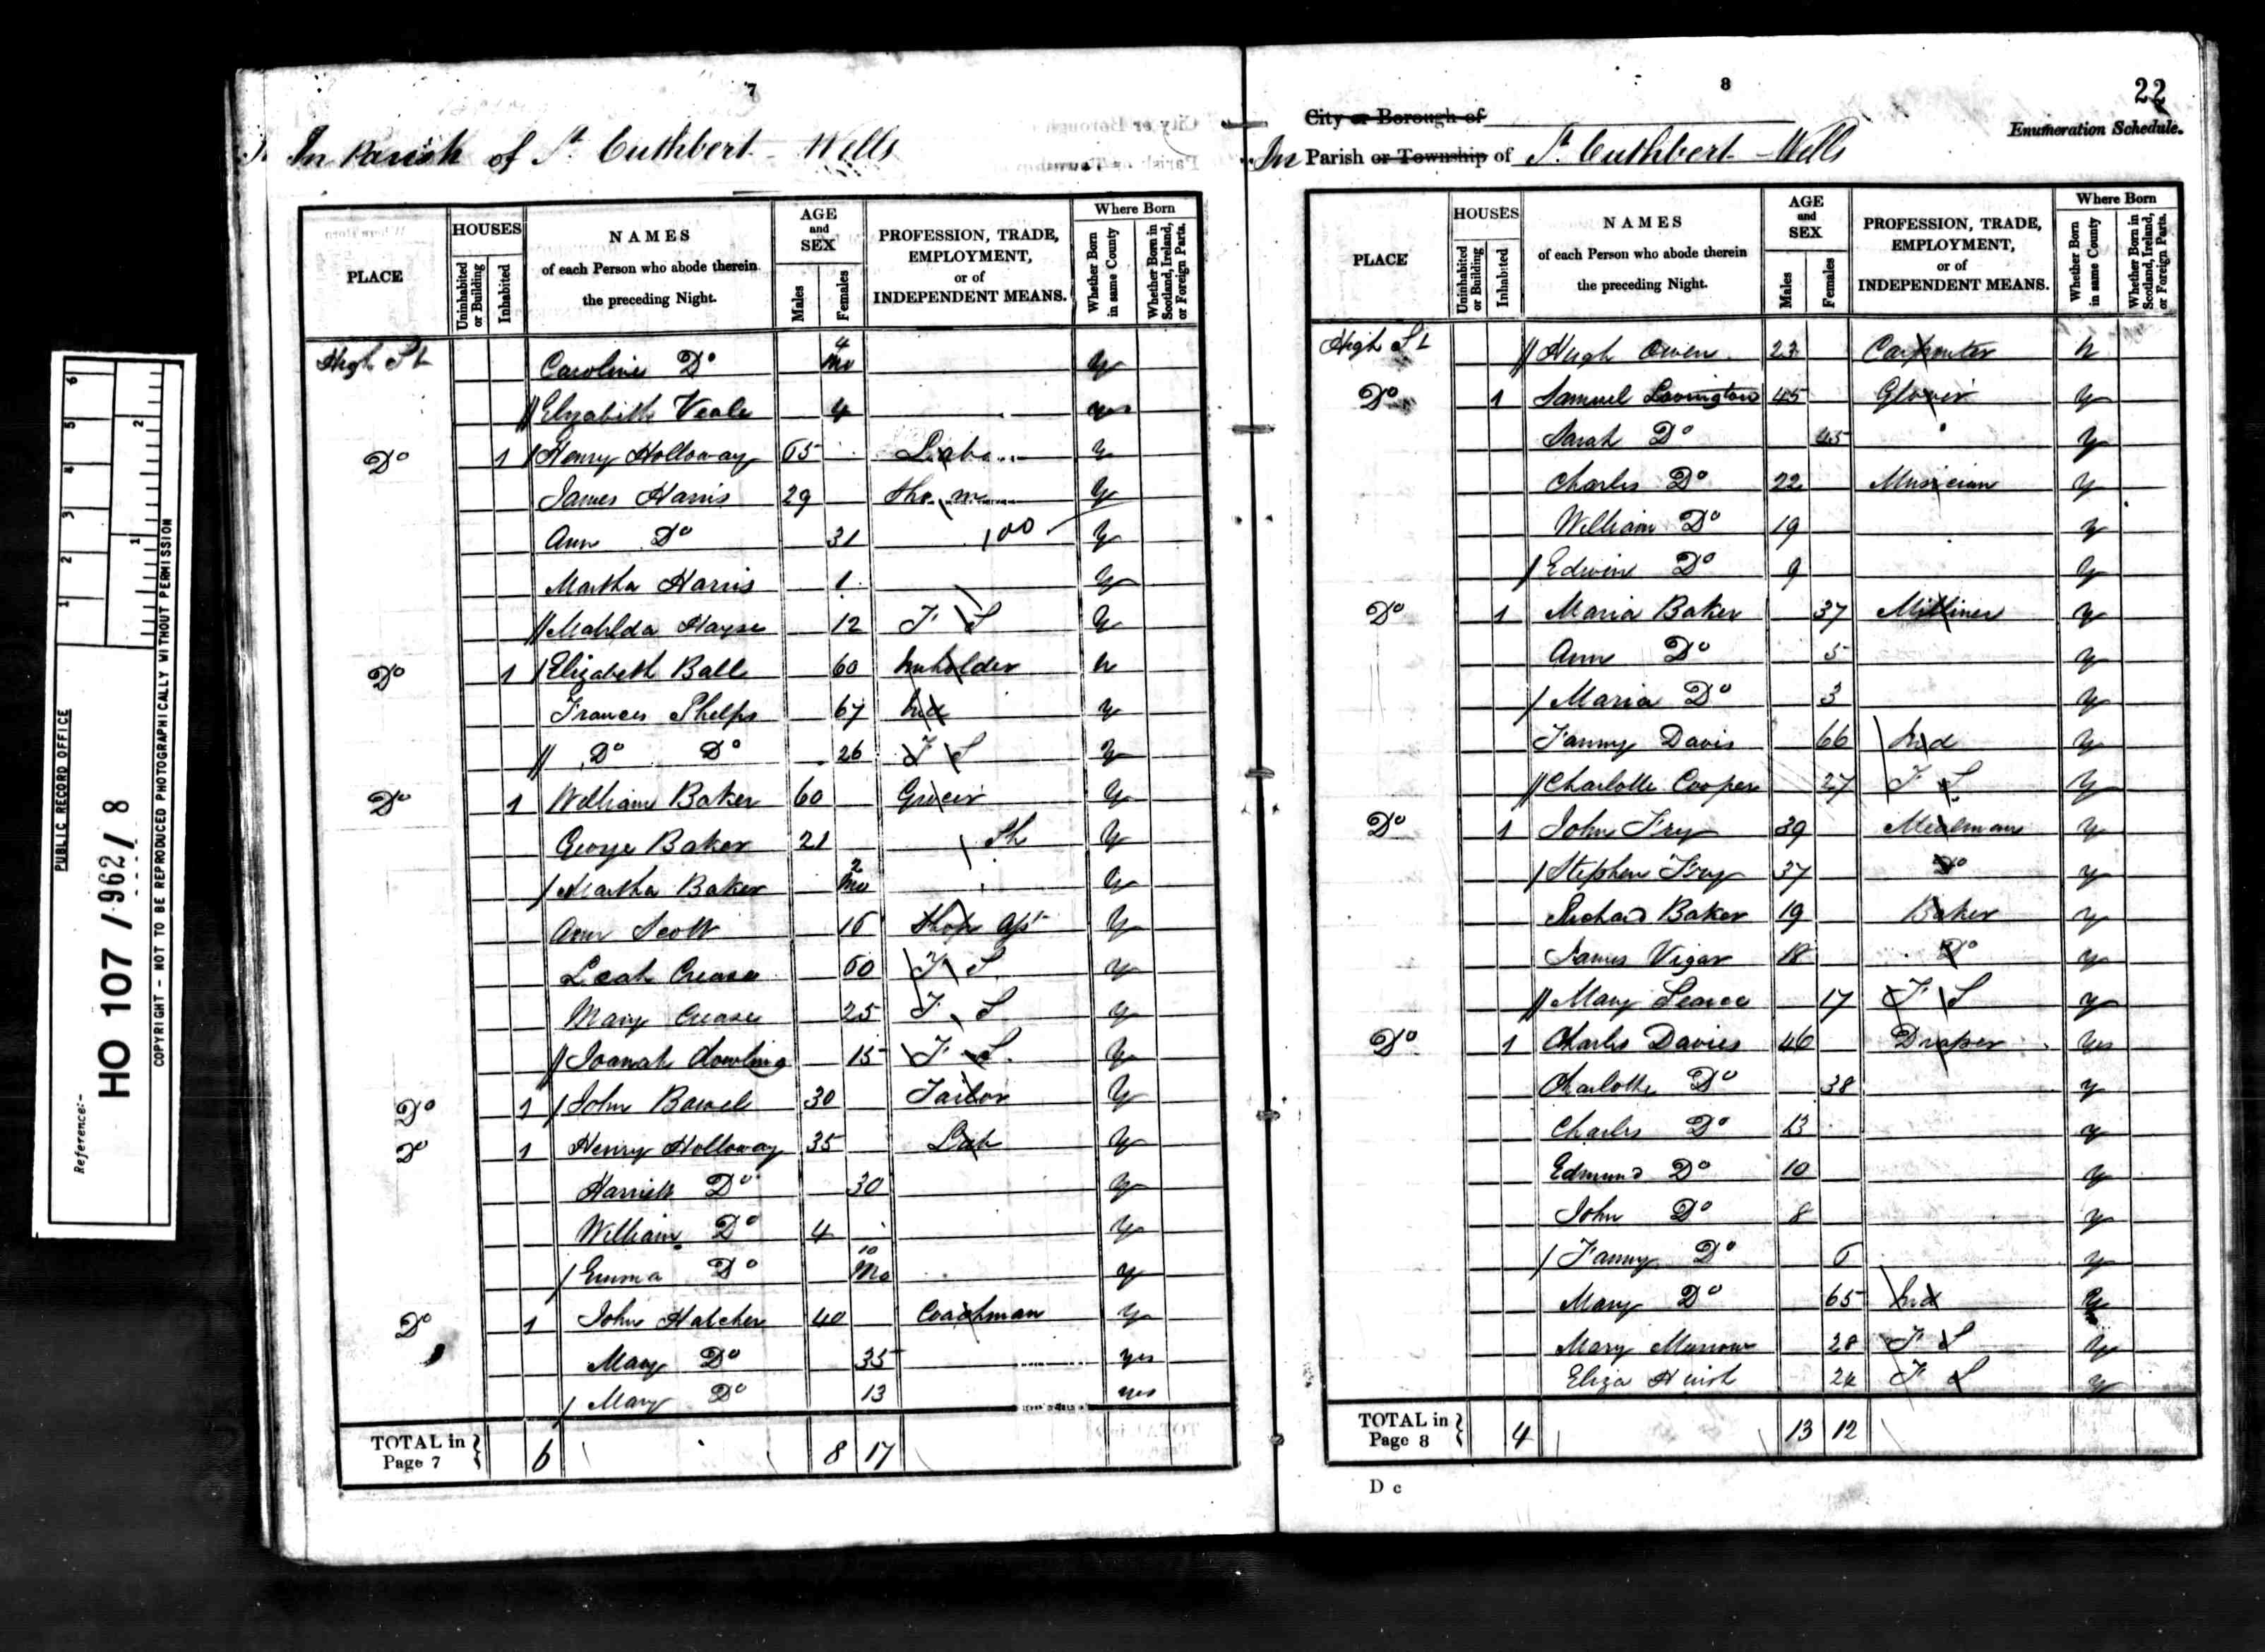 PUBLIC RECORD OFFICE
Reference:-
HO 107 / 962 / 8
COPYRIGHT - NOT TO BE REPRODUCED PHOTOGRAPHICALLY WITHOUT PERMISSION
1 2 3 4 5 6
1 2
7
In Parish of St Cuthbert - Wells
PLACE
HOUSES
Uninhabited or Building
Inhabited
NAMES
of each Person who abode therein
the preceding Night.
AGE and SEX
Males
Females
PROFESSION, TRADE,
EMPLOYMENT,
or of
INDEPENDENT MEANS.
Where Born
Whether Born in same County
Whether Born in Scotland, Ireland, or Foreign Parts.
High St Caroline Do 4 Mo y
// Elizabeth Veale 4 yes
Do 1 / Henry Holloway 65 y
James Harris 29 y
Ann Do 31 y
Martha Harris 1 y
// Matilda 12 F S y
Do 1 / Elizabeth Ball 60 Innholder n
Frances Phelps 67 Ind y
// Do Do 26 F S y
Do 1 William Baker 60 Grocer y
George Baker 21 Sh y
/ Martha Baker 2 Mo y
Ann Scott 16 Shop y
Leah Crease 60 F S y
Mary Crease 25 F S y
// Joanah Dowling 15 F S y
Do 1 / John 30 Tailor y
Do 1 Henry Holloway 35 Lab y
Harriett Do 30 y
William Do 4 y
/ Emma Do 10 Mo y
Do 1 John Hatcher 40 Coachman y
Mary Do 35 yes
/ Mary Do 13 yes
TOTAL in Page 7 } 6 8 17
8
22
City or Borough of
Enumeration Schedule.
In Parish or Township of St Cuthbert - Wells
PLACE
HOUSES
Uninhabited or Building
Inhabited
NAMES
of each Person who abode therein
the preceding Night.
AGE and SEX
Males
Females
PROFESSION, TRADE,
EMPLOYMENT,
or of
INDEPENDENT MEANS.
Where Born
Whether Born in same County
Whether Born in Scotland, Ireland, or Foreign Parts.
High St // Hugh Owen 23 Carpenter n
Do 1 Samuel Lovington 45 Glover y
Sarah Do 45 y
Charles Do 22 Musician y
William Do 19 y
/ Edwin Do 9 y
Do 1 Maria Baker 37 Milliner y
Ann Do 5 y
/ Maria Do 3 y
Fanny Davis 66 Ind y
// Charlotte Cooper 27 F S y
Do 1 John Fry 39 Mealman y
/ Stephen Fry 37 Do y
Richard Baker 19 Baker y
James Vigar 18 Do y
// Mary Pearce 17 F S y
Do 1 Charles Davies 46 Draper yes
Charlotte Do 38 y
Charles Do 13 y
Edmund Do 10 y
John Do 8 y
/ Fanny Do 6 y
Mary Do 65 Ind y
Mary 28 F S y
Eliza 24 F S y
TOTAL in Page 8 } 4 13 12
D c